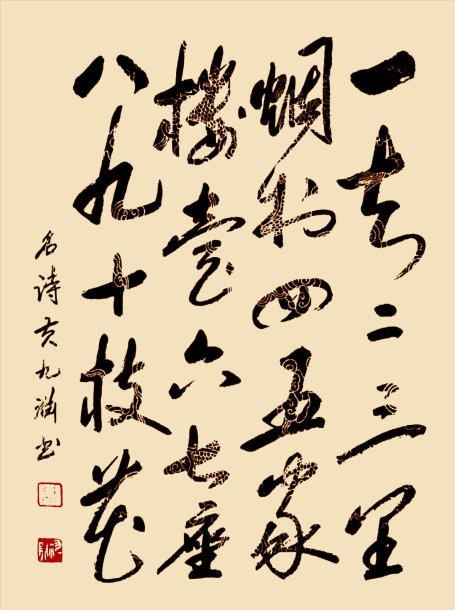 一去二三里
烟村四五家
樓臺六七座
八九十枝花
名诗 九 书